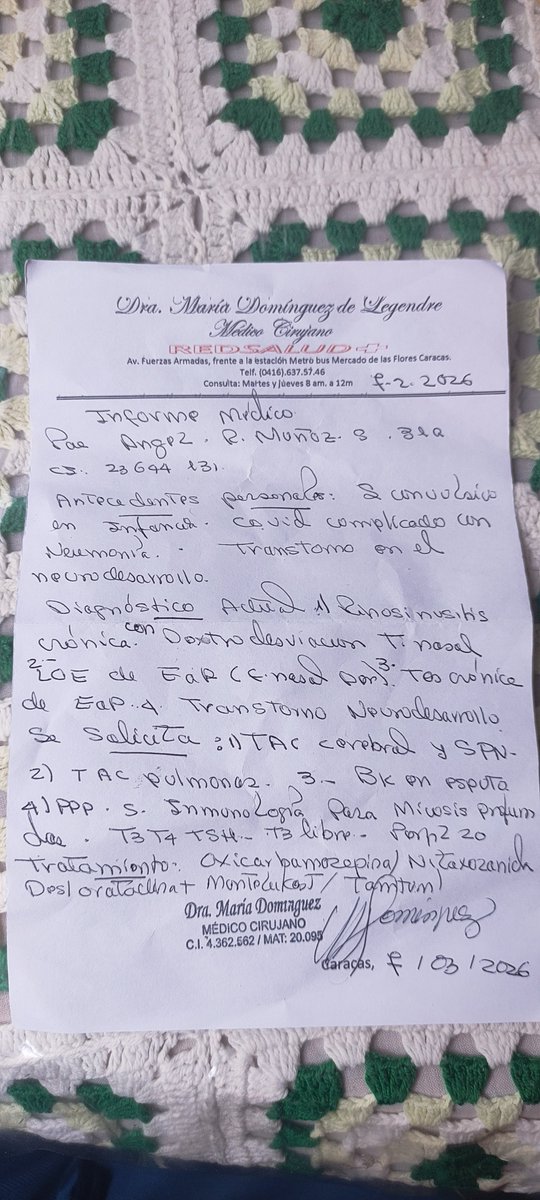 Dra. María Domínguez de Legendre
Médico Cirujano
REDSALUD
Av. Fuerzas Armadas, frente a la estación Metro bus Mercado de las Flores Caracas.
Telf. (0416).637.57.46
Consulta: Martes y jueves 8 am. a 12m
2. 2026
Informe Médico
Pac Angel. R. Muñoz. S. 31a
23644131.
Antecedentes personales: S convulsivo
en Infancia. Covid complicado con
Neumonía. Transtorno en el
neurodesarrollo.
Diagnóstico Actual 1) Rinosinusitis
crónica. con Dextrodesviacion T. nasal
2- LOE de EaP (E. nasal 3. Tos crónica
de EaP. 4. Transtorno Neurodesarrollo
Se Solicita: 1) TAC cerebral y SPN-
2) TAC pulmonar. 3.- BK en esputo
4) PPP. S. Inmunología Para Micosis profun
das. T3 T4 TSH.- T3 libre.- 20
Tratamiento: Oxicarbamazepina/ Nitaxozanida
Desloratadina + Montelukast / Tamtum
Dra. María Domínguez
MÉDICO CIRUJANO
C.I. 4.362.662 / MAT: 20.095
Caracas, / 03 / 2026